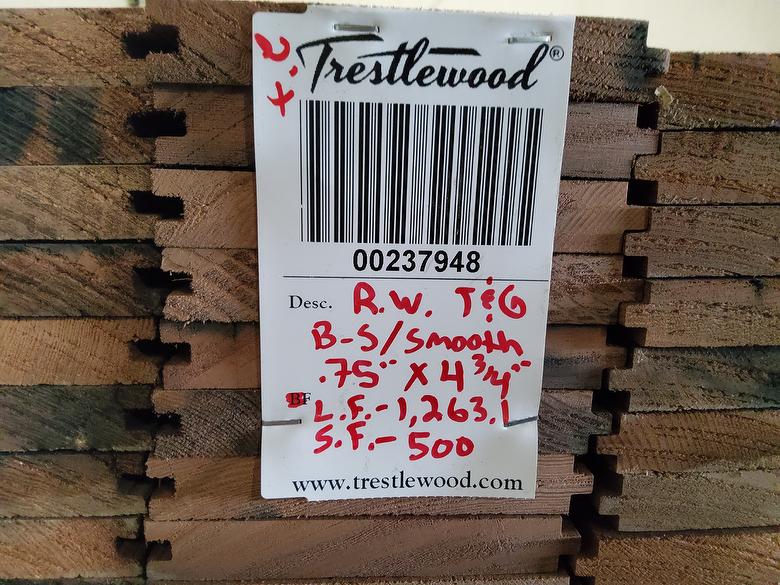 2.x
Trestlewood®
00237948
Desc. R.W. T&G
B-S/Smooth
.75" X 4 3/4"
BF L.F.-1,263.1
S.F.-500
www.trestlewood.com